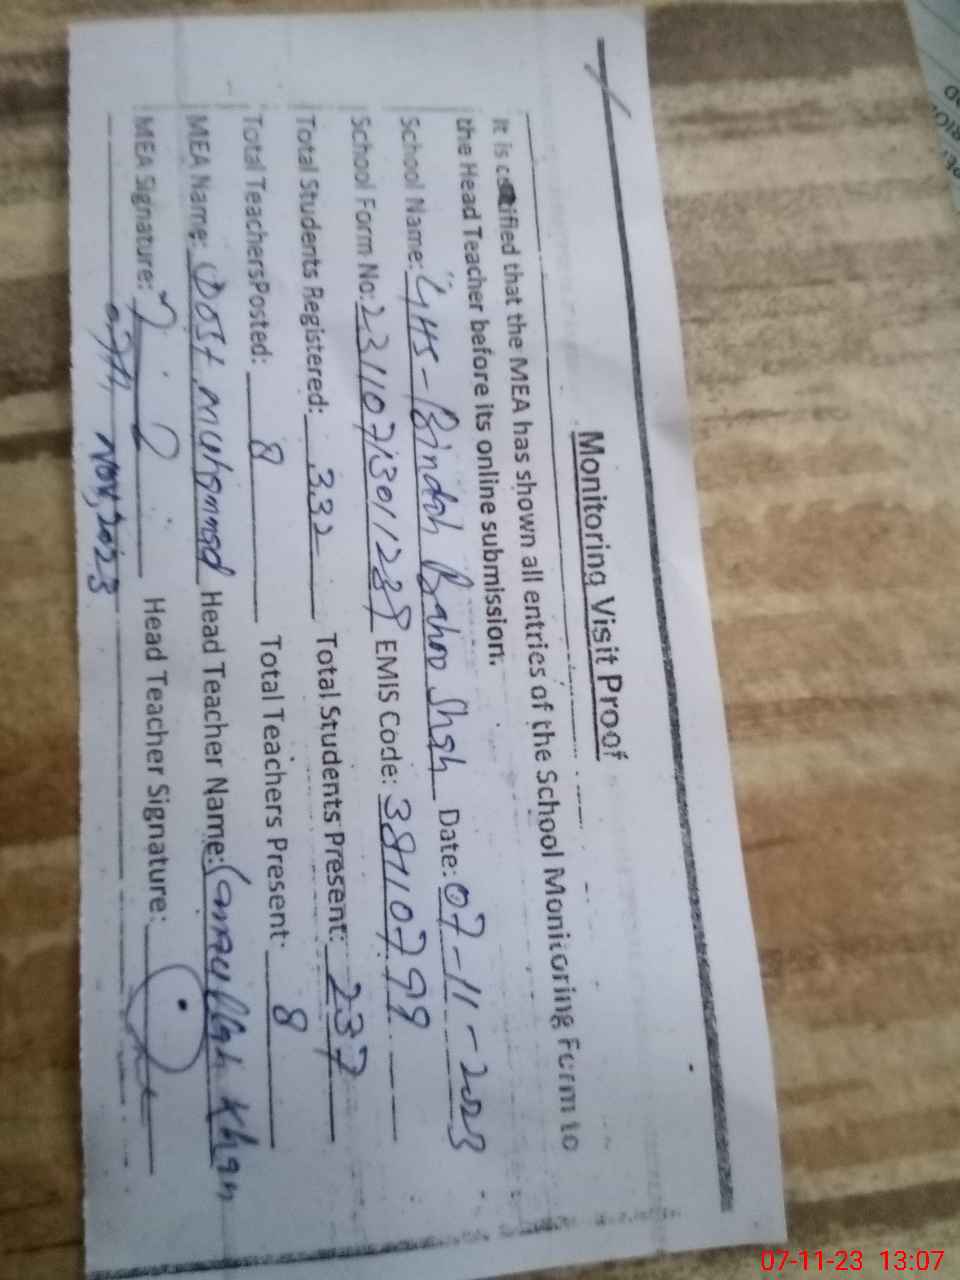 Monitoring Visit Proof
It is certified that the MEA has shown all entries of the School Monitoring Form to
the Head Teacher before its online submission.
School Name: GHS - Bindah Bahoo Shah Date: 07-11-2023
School Form No: EMIS Code: 38710799
Total Students Registered: 332 Total Students Present: 237
Total Teachers Posted: 8 Total Teachers Present: 8
MEA Name: Dost Muhammad Head Teacher Name: Khan
MEA Signature: Head Teacher Signature:
07th, Nov, 2023
07-11-23 13:07